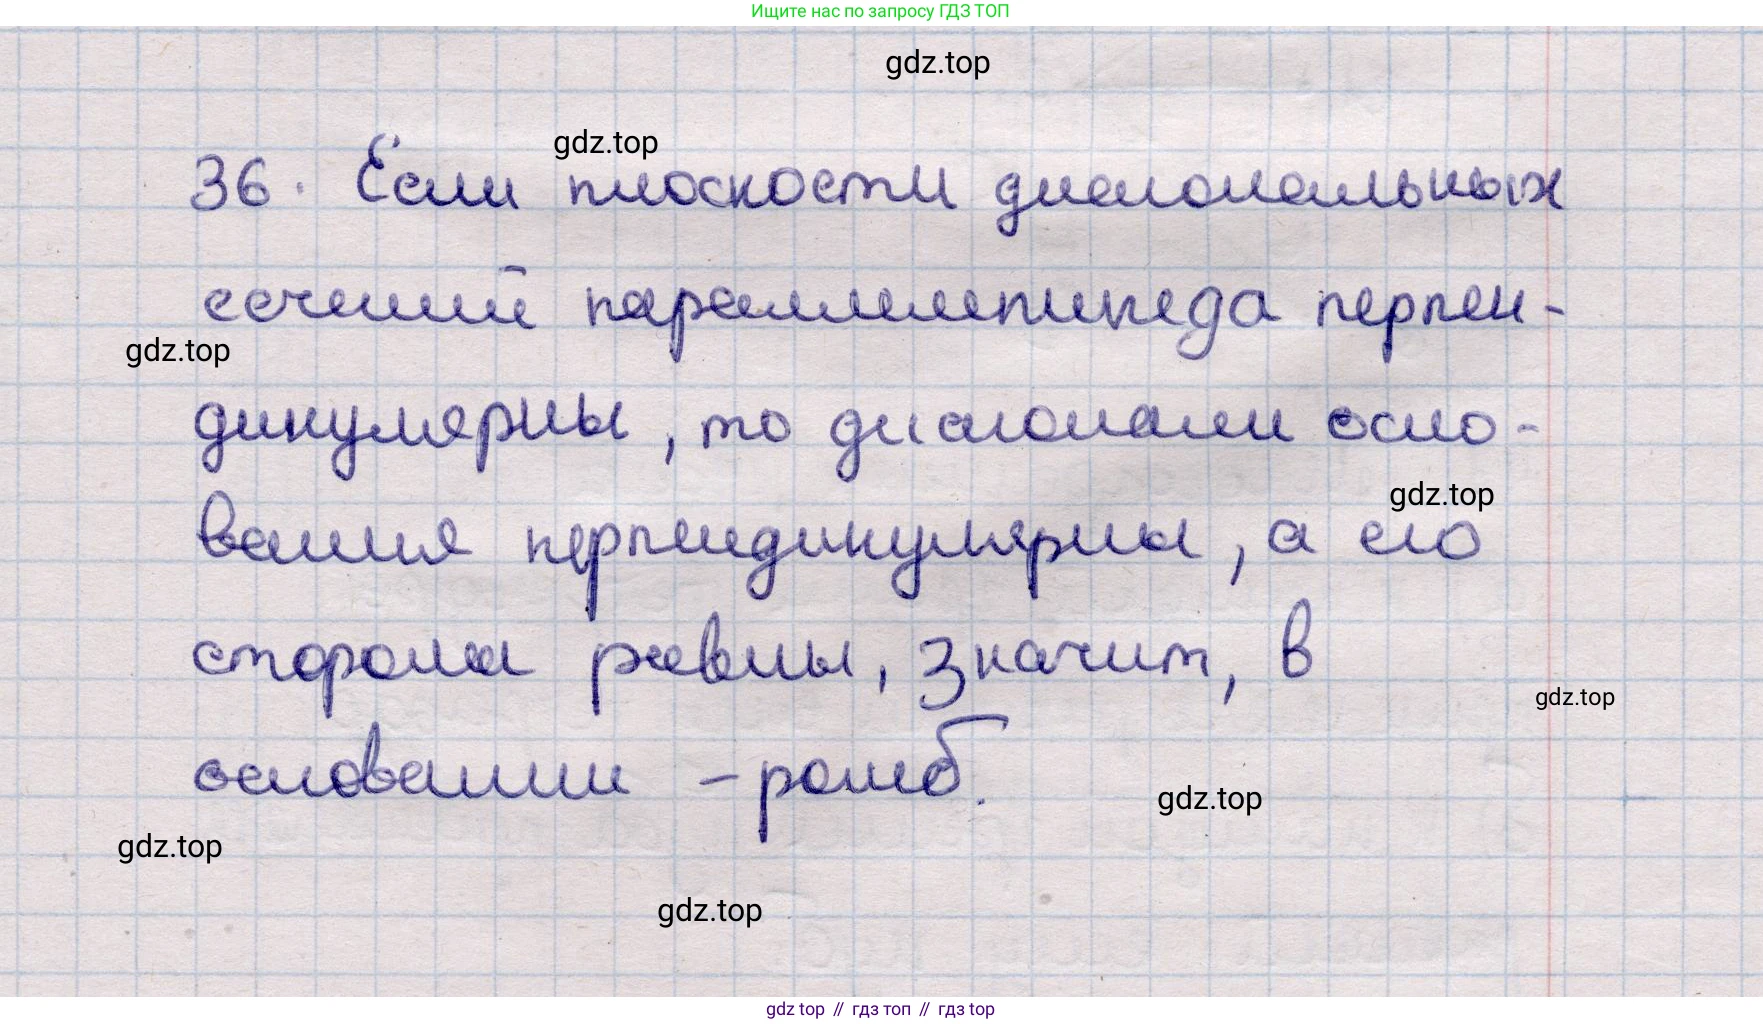 Ищите нас по запросу ГДЗ ТОП
gdz.top
gdz.top
36. Если плоскости диагональных
сечений параллелепипеда перпен-
gdz.top
дикулярны, то диагонали осно-
gdz.top
вания перпендикулярны, а его
стороны равны, значит, в
gdz.top
основании – ромб.
gdz.top
gdz.top
gdz.top
gdz top // гдз топ // gdz top